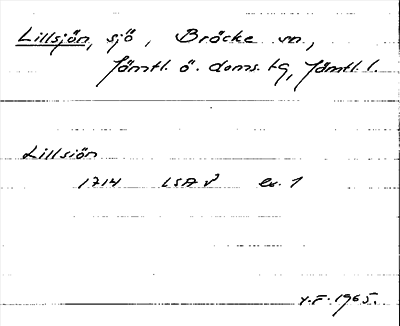 Lillsjön, sjö, Bräcke sn,
Jämtl. ö. doms. tg, Jämtl. l.
Lillsjön
1714 LSA V ev. 1
Y.F. 1965.